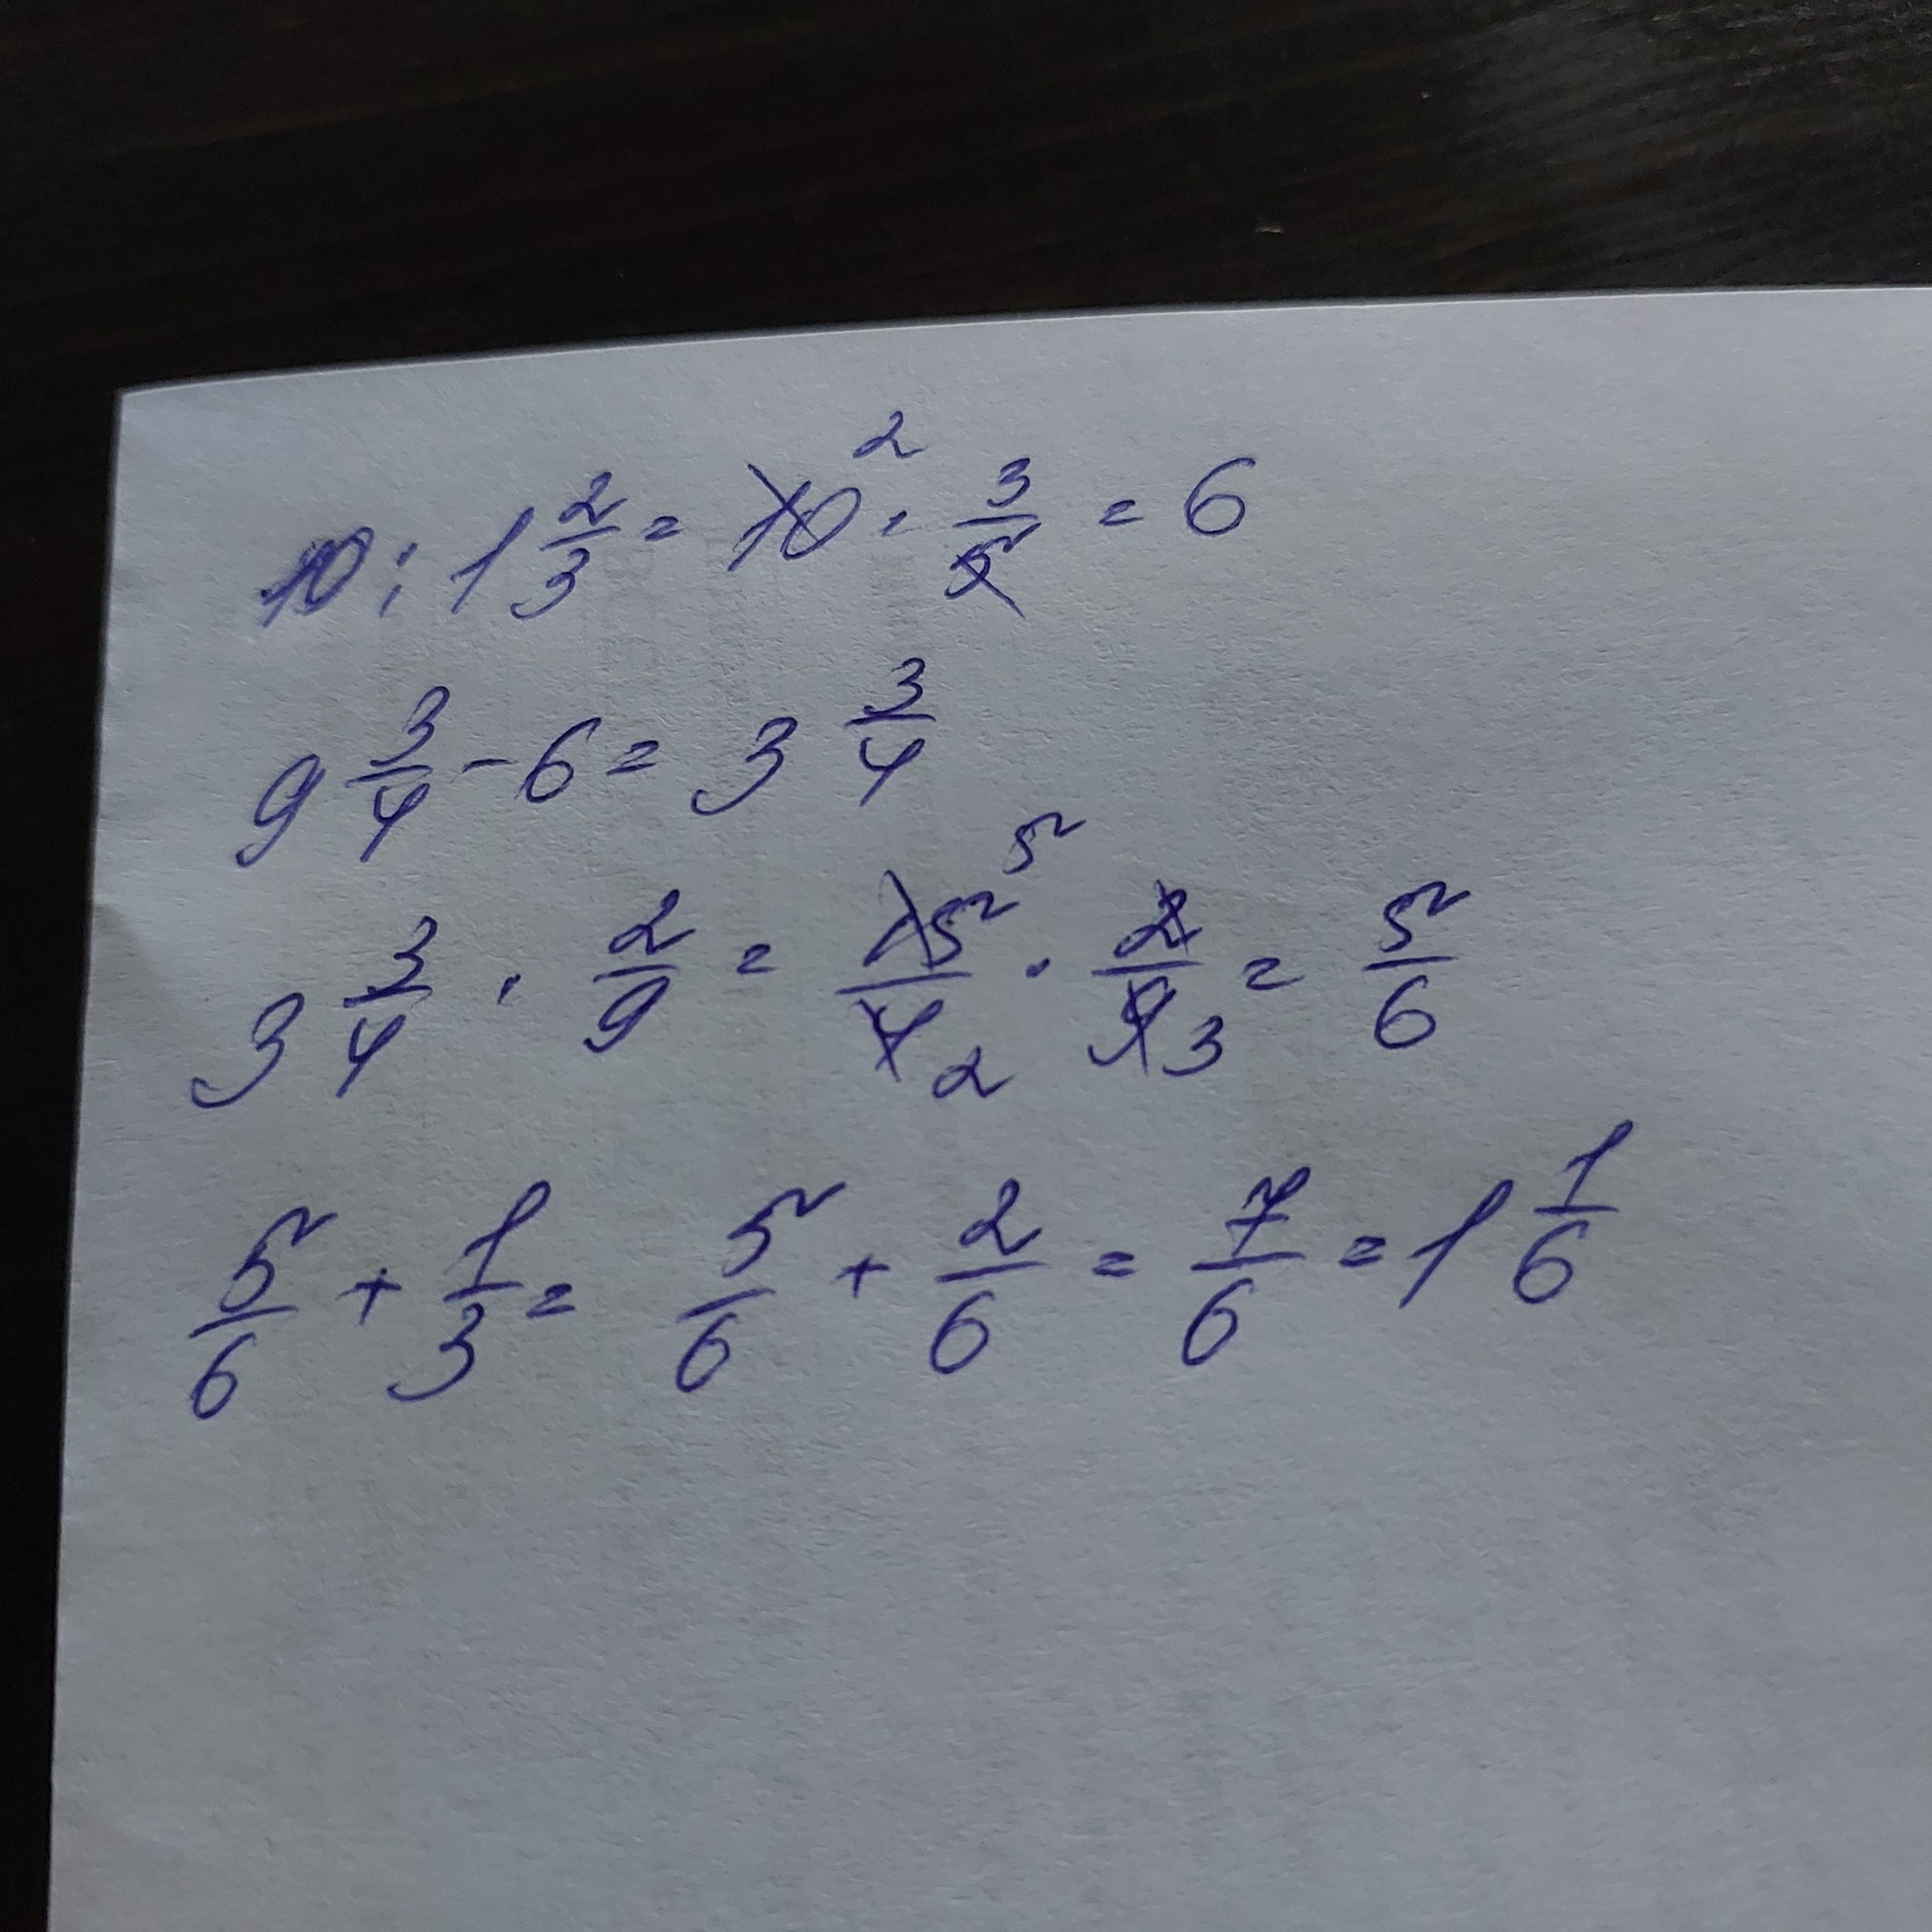 10 : 1 2/3 = 10 2 · 3/5 = 6
9 3/4 - 6 = 3 3/4
3 3/4 · 2/9 = 15 5/4 2 · 2/9 3 = 5/6
5/6 + 1/3 = 5/6 + 2/6 = 7/6 = 1 1/6